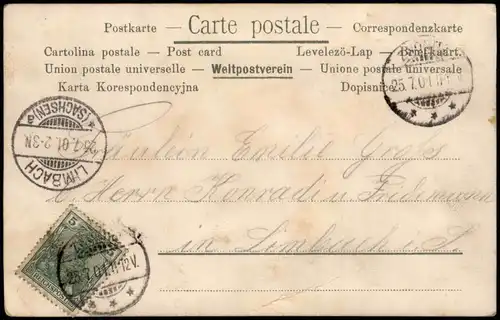 Postkarte — Carte postale — Correspondenzkarte
Cartolina postale — Post card Levelező-Lap — Briefkaart.
Union postale universelle — Weltpostverein — Unione postale universale
Karta Korespondencyjna Dopisnice
25.7.01.11-12V.
LIMBACH (SACHSEN)
25.7.01.2-3N
Fräulein Emilie Gross
b. Herrn Konradi u. Friedemann
in Limbach i. S.
5
25.7.01.11-12V.